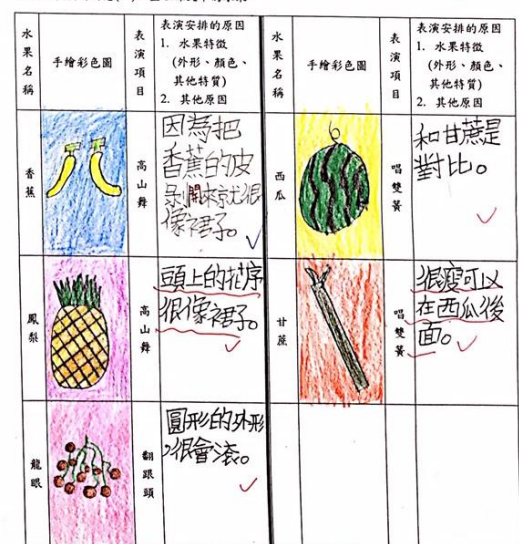 水果名稱
手繪彩色圖
表演項目
表演安排的原因
1. 水果特徵
(外形、顏色、
其他特質)
2. 其他原因
水果名稱
手繪彩色圖
表演項目
表演安排的原因
1. 水果特徵
(外形、顏色、
其他特質)
2. 其他原因
香蕉
高山舞
因為把
香蕉的皮
剝開來就很
像裙子。
西瓜
唱雙簧
和甘蔗是
對比。
鳳梨
高山舞
頭上的花序
很像裙子。
甘蔗
唱雙簧
很瘦可以
在西瓜後
面。
龍眼
翻跟頭
圓形的外形
,很會滾。